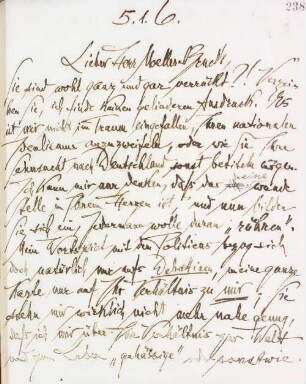 238
5.1.6.
Lieber Herr Moeller-Bruck,
Sie sind wohl ganz und gar verrückt?! Verzeih-
en Sie, ich finde keinen gelinderen Ausdruck. Es
ist mir nicht im Traum eingefallen, Ihren nationalen
Idealismus anzuzweifeln, oder wie Sie Ihre
Sehnsucht nach Deutschland sonst betiteln mögen.
Ich kann mir nur denken, daß das eine wunde
Stelle in Ihrem Herzen ist, und nun bilden
Sie sich ein, jedermann wolle daran "rühren".
Mein Vergleich mit den bezog sich
doch natürlich nur aufs , meine ganze
nur auf Ihr Verhältnis zu mir; Sie
stehn mir wirklich nicht mehr nahe genug,
daß ich mir über Ihr Verhältnis zur Welt
und zum Leben "gehässige" oder sonstwie